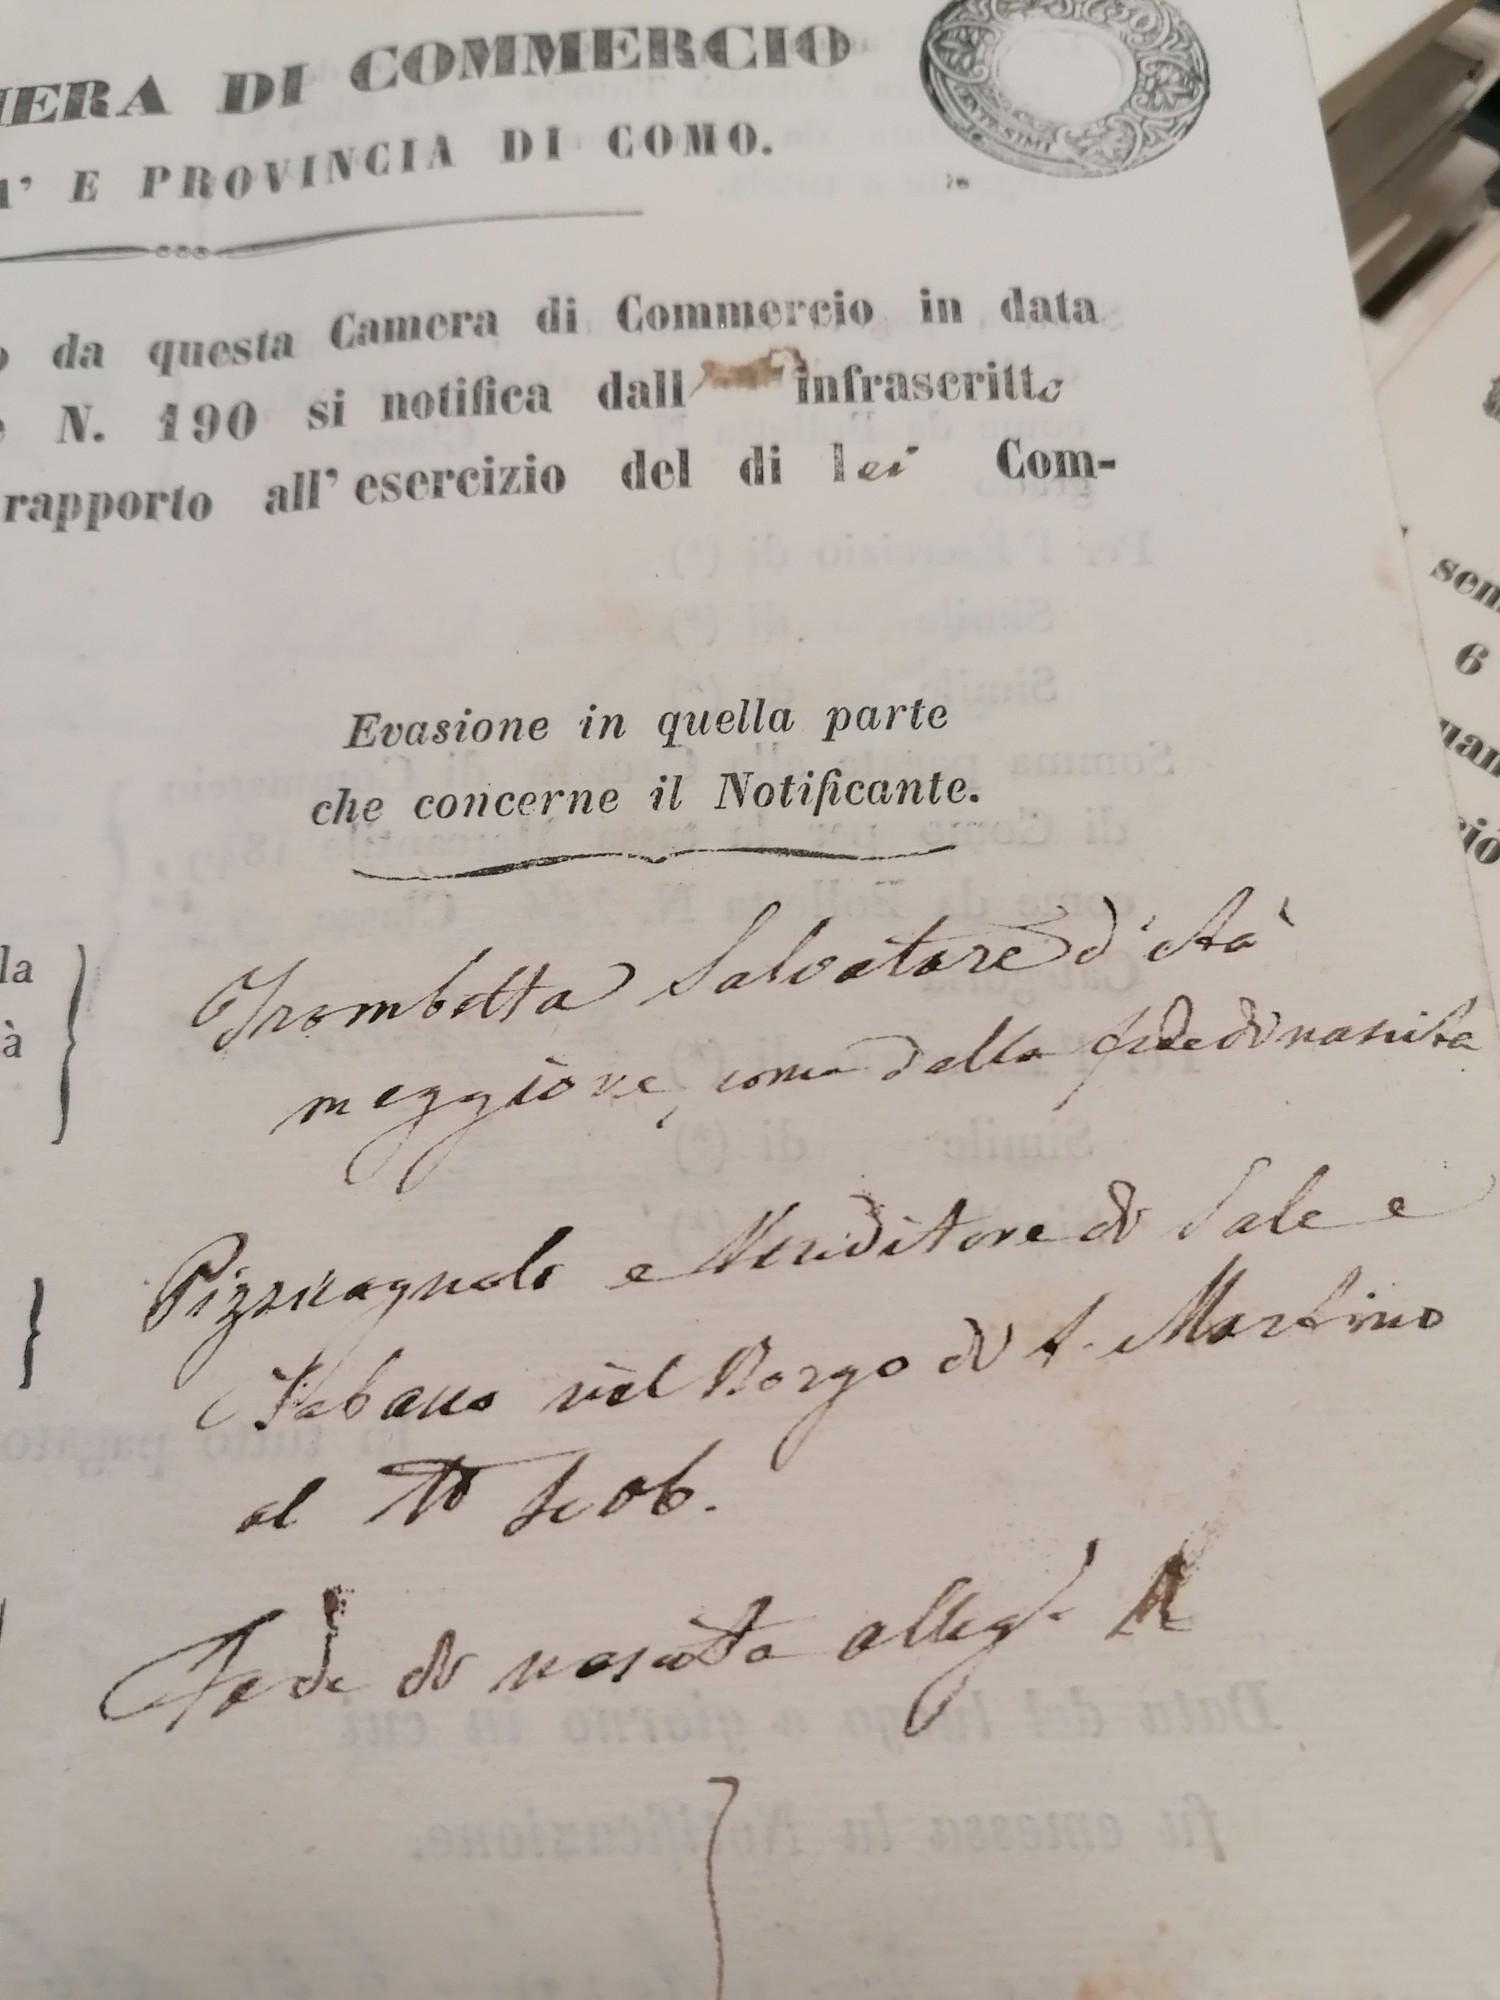 MERA DI COMMERCIO
A' E PROVINCIA DI COMO.
CENTESIMI
o da questa Camera di Commercio in data
e N. 190 si notifica dall infrascritto
rapporto all' esercizio del di lei Com-
Evasione in quella parte
che concerne il Notificante.
la
à
Trombetta Salvatore d'età
meggiore, come dalla fede di nascita
Pizzicagnolo e Venditore di Sale e
Tabacco nel Borgo di S. Martino
al
Fede di nascita alleg. A
sem
6
uan
cio